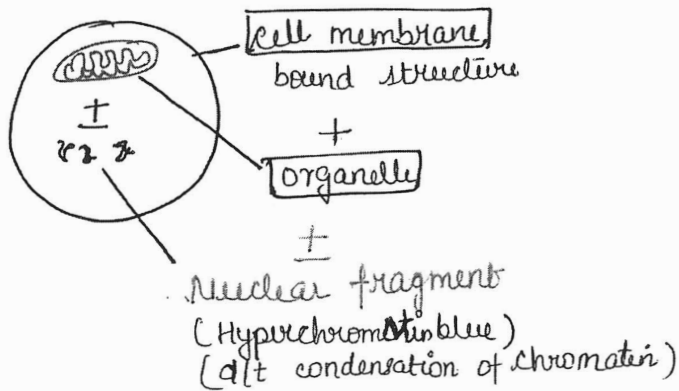 cell membrane
bound structure
+
organelle
±
±
Nuclear fragment
(Hyperchromatin blue)
(d/t condensation of chromatin)